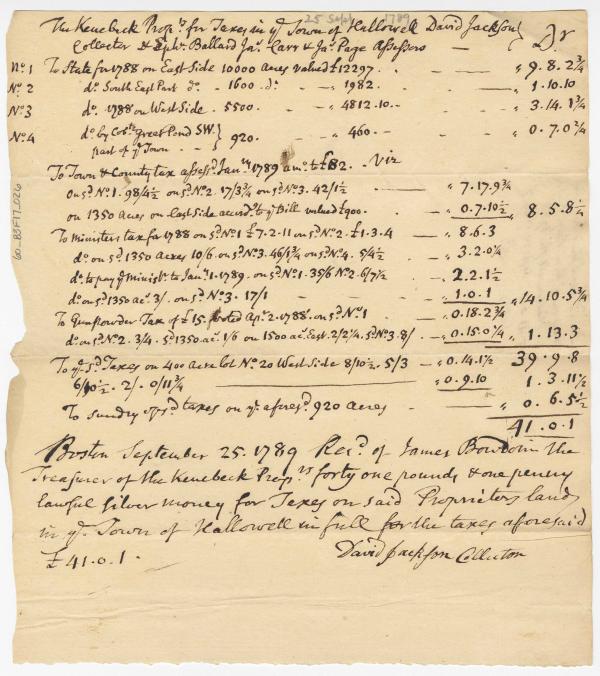 25 Sept 1789
The Kenebeck Prop.rs for Taxes in ye Town of Hallowell David Jackson
Collecter & Eph.m Ballard Ja.s Carr & Ja.s Page Assessors — Dr
No. 1 To State for 1788 on East Side 10000 Acres valued £12297 . — " 9. 8. 2 3/4
No. 2 do. South East Part do. - 1600 . do. - " 1982 . — " 1. 10. 10
No. 3 do. 1788 on West Side . 5500 . — " 4812.10 .. — " 3. 14. 1 3/4
No. 4 do. by Cobs. great Pond SW. } 920 . — " 460 .. — " 0. 7. 0 2/4
part of ye Town . — }
To Town & County tax assess.d Jan.ry 1789 am.o to £82 . Viz
on sd No. 1 . 98/4 1/2 on sd No. 2 . 17/3 3/4 on sd No. 3 . 42/1 1/2 — " 7. 17. 9 3/4
on 1350 Acres on East Side accord.g to ye Bill valued £900 . — " 0. 7. 10 1/2 " 8. 5. 8 1/4
To Ministers tax for 1788 on sd No. 1 £7.2.11 on sd No. 2 . £1.3.4 — " 8. 6. 3
do. on sd 1350 Acres 10/6 . on sd No. 3 . 46/1 3/4 on sd No. 4 . 5/4 1/2 — " 3. 2. 0 1/4
do. to pay ye Minis.r to Jan.y 1. 1789 . on sd No. 1 . 35/6 No. 2 . 6/7 1/2 — 2. 2. 1 1/2
do. on sd 1350 ac. 3/. on sd No. 3 . 17/1 — 1. 0. 1 " 14. 10. 5 3/4
To Gunpowder Tax of £15 . voted Ap. 2. 1788 . on sd No. 1 — " 0. 18. 2 3/4
do. on sd No. 2 . 3/4 . sd 1350 ac. 1/6 on 1500 ac. East . 2/2 1/4 . sd No. 3 . 8/ . — " 0. 15. 0 1/4 " 1. 13. 3
To ye sd Taxes on 400 acre lot No. 20 West Side 8/10 1/2 . 5/3 — " 0. 14. 1 1/2 39. 9. 8
6/10 1/2 . 2/ . 0/11 3/4 — " 0. 9. 10 1. 3. 11 1/2
To Sundry taxes on ye afores.d 920 acres — " 0. 6. 5 1/2
41. 0. 1
Boston September 25. 1789 Rec.d of James Bowdoin the
Treasurer of the Kenebeck Prop.rs forty one pounds & one penny
lawful silver money for Taxes on said Proprietors lands
in ye Town of Hallowell in full for the taxes aforesaid
£41.0.1. David Jackson Collector
60_B3F17_026